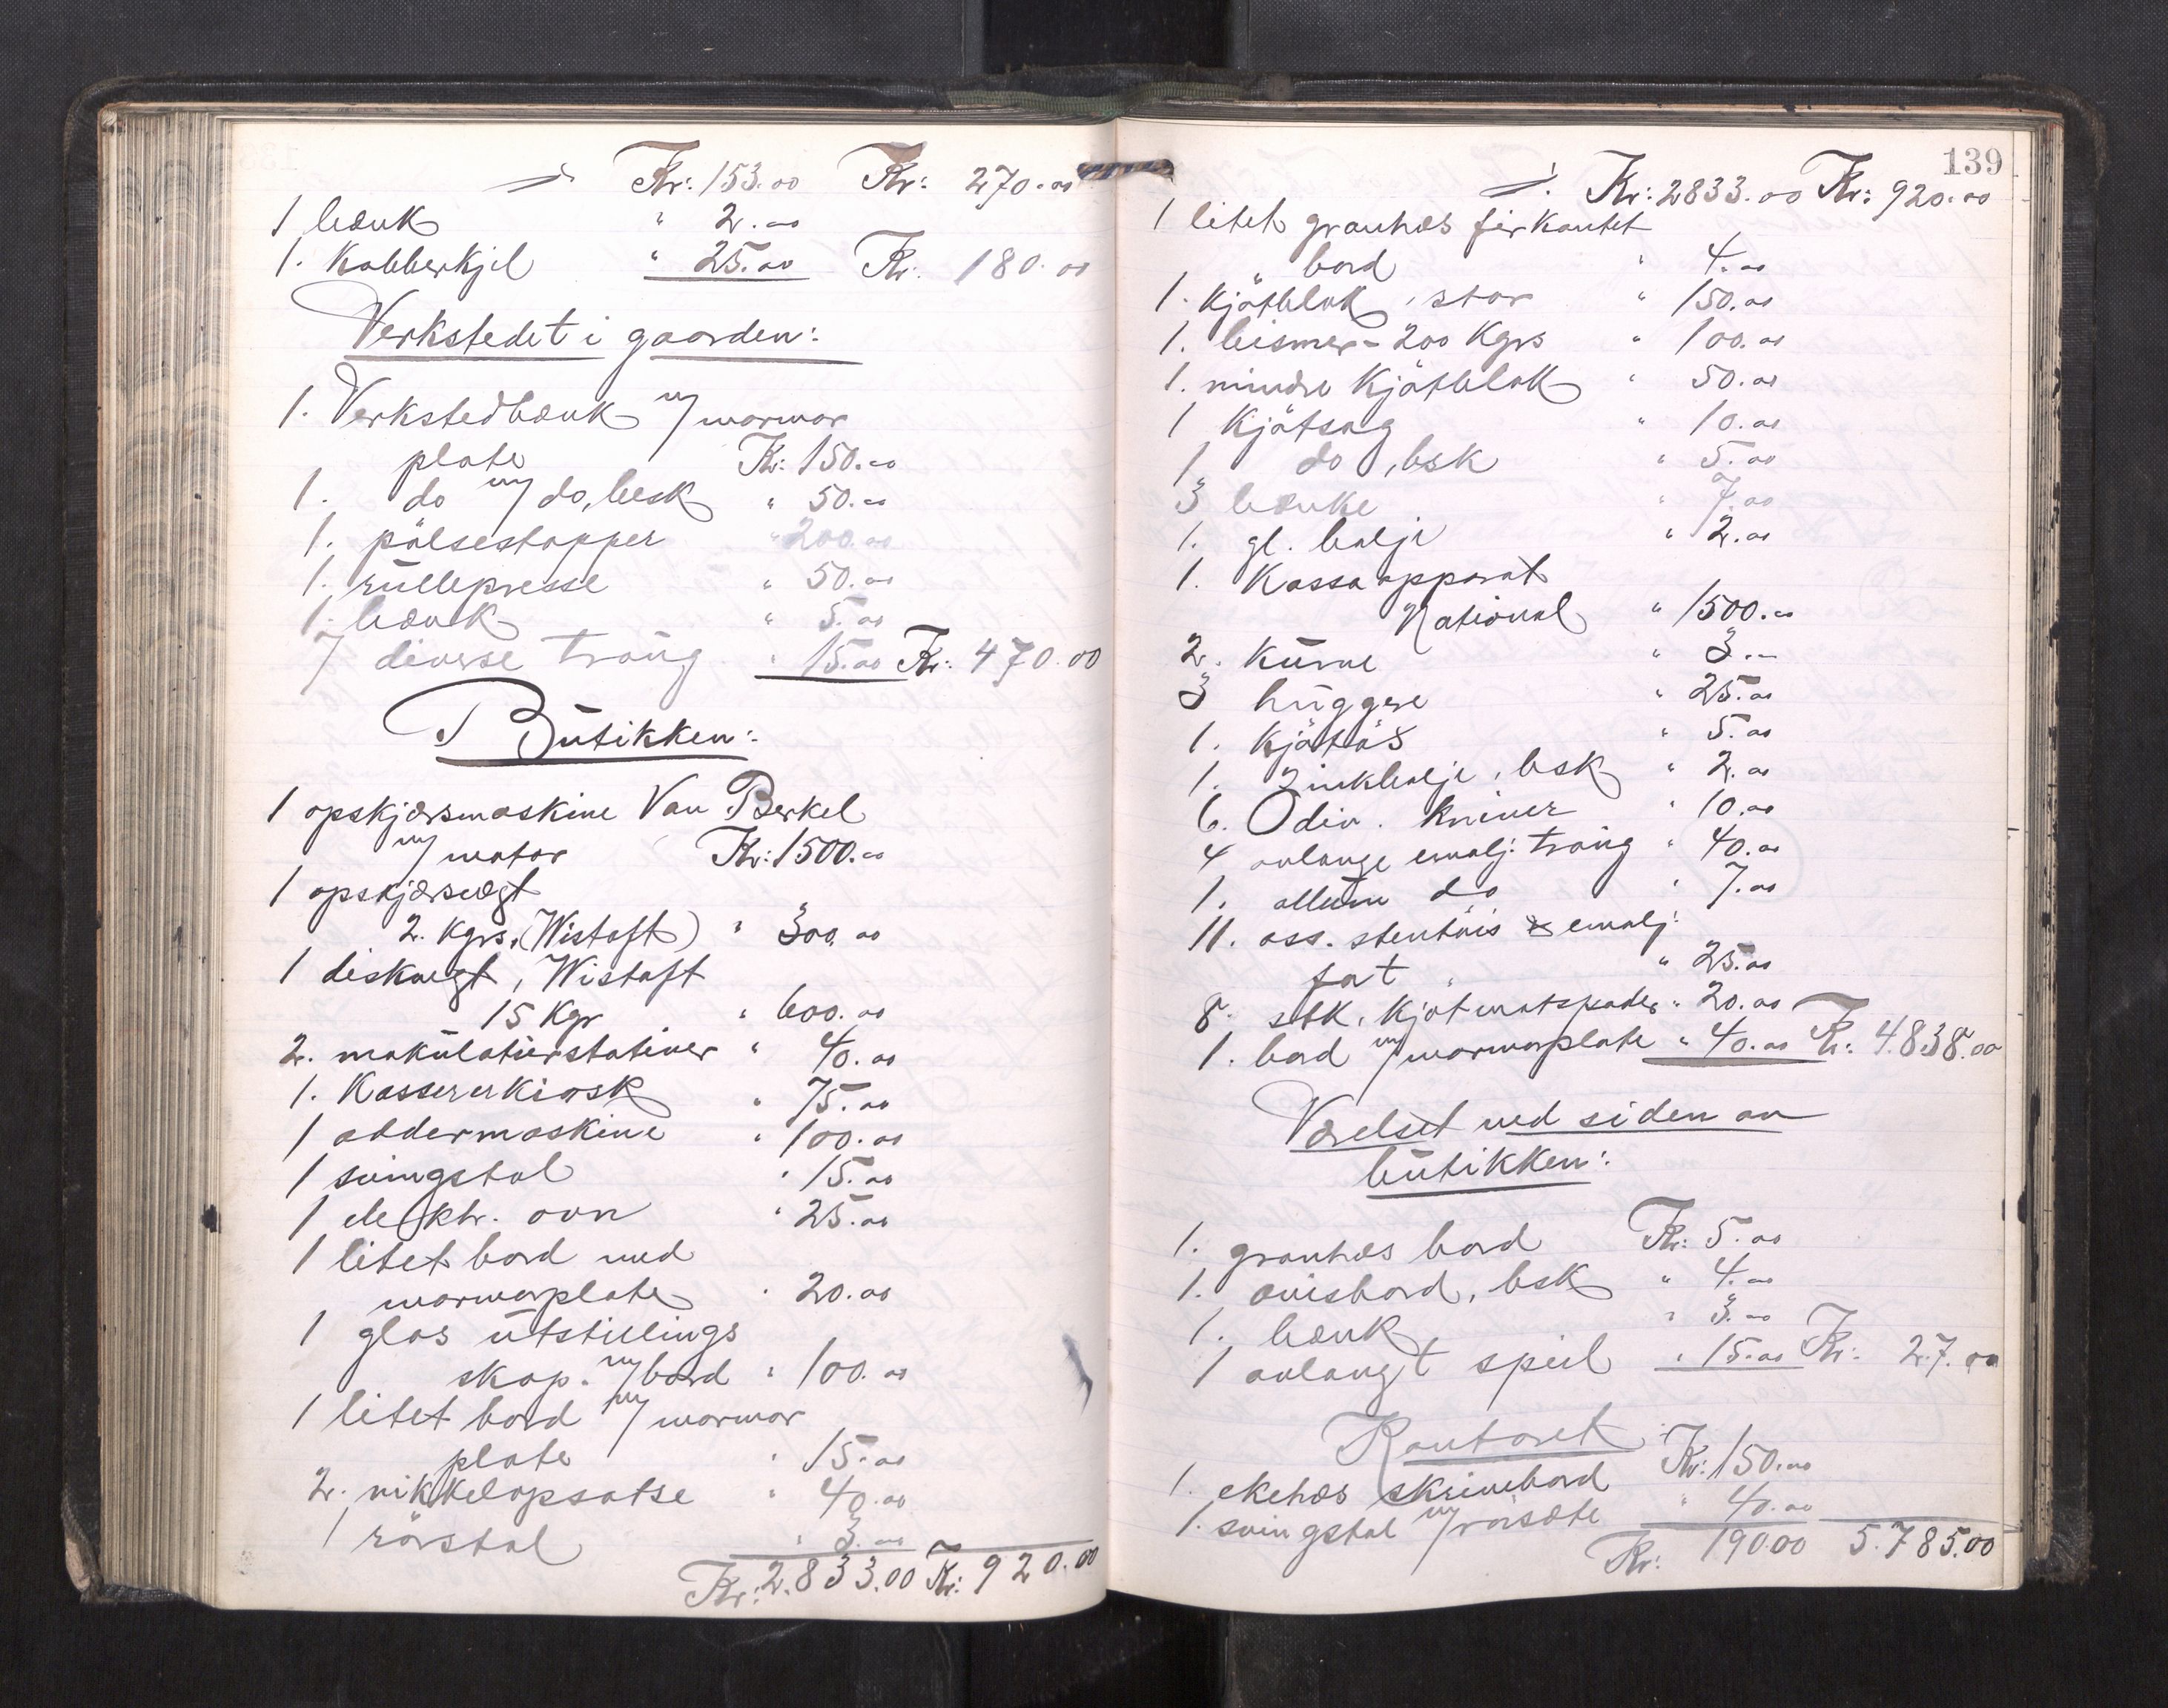 Kr: 153.00 Kr: 270.00
1 bænk " 2.00
1. Kobberkjel " 25.00 Kr. 180.00
Verkstedet i gaarden:
1. Verkstedbænk m/ marmor
plate Kr: 150.00
1. do m/ do, besk " 50.00
1. pölsestopper " 200.00
1. rullepresse " 50.00
1. bænk " 5.00
7 diverse traug " 15.00 Kr: 470.00
Butikken:
1 opskjærsmaskine Van Berkel
m/ motor Kr: 1500.00
1 opskjærsvegt
2. Kgrs. (Wistoft) " 300.00
1 diskvegt, Wistoft
15 Kgr " 600.00
2. makulaturstativer " 40.00
1. Kassererkiosk " 75.00
1 addermaskine " 100.00
1 svingstol " 15.00
1 elektr. ovn " 25.00
1 litet bord med
marmorplate " 20.00
1 glas utstillings
skap. m/ bord " 100.00
1 litet bord m/ marmor
plate " 15.00
2. nikkelopsatse " 40.00
1 rörstol " 3.00
Kr: 2.833.00 Kr: 920.00
139
Kr: 2833.00 Kr: 920.00
1 litet graahvs firkantet
" bord " 4.00
1. Kjötblok, stor " 150.00
1. bismer - 200 Kgrs " 100.00
1. mindre Kjötblok " 50.00
1 Kjötsag " 10.00
1 do, bsk " 5.00
3 bænke " 7.00
1. gl. balje " 2.00
1. Kassaapparat
National " 1500.00
2. Kurve " 3.00
3 huggere " 25.00
1. Kjötös " 5.00
1. Zinkbalje, bsk " 2.00
6. div. kniver " 10.00
4 avlange emalj. traug " 40.00
1. allum do " 7.00
11. ass. stentöis & emalj.
fat " 25.00
8. stk. Kjötmatspader " 20.00
1. bord m/ marmorplate " 40.00 Kr: 4.838.00
Værelset ved siden av
butikken:
1. graahvs bord Kr: 5.00
1. avisbord, bsk " 4.00
1. bænk " 3.00
1 avlangt speil " 15.00 Kr: 27.00
Kontoret
1. ekehvs skrivebord Kr: 150.00
1. svingstol m/ rörsæte " 40.00
Kr: 190.00 5.785.00